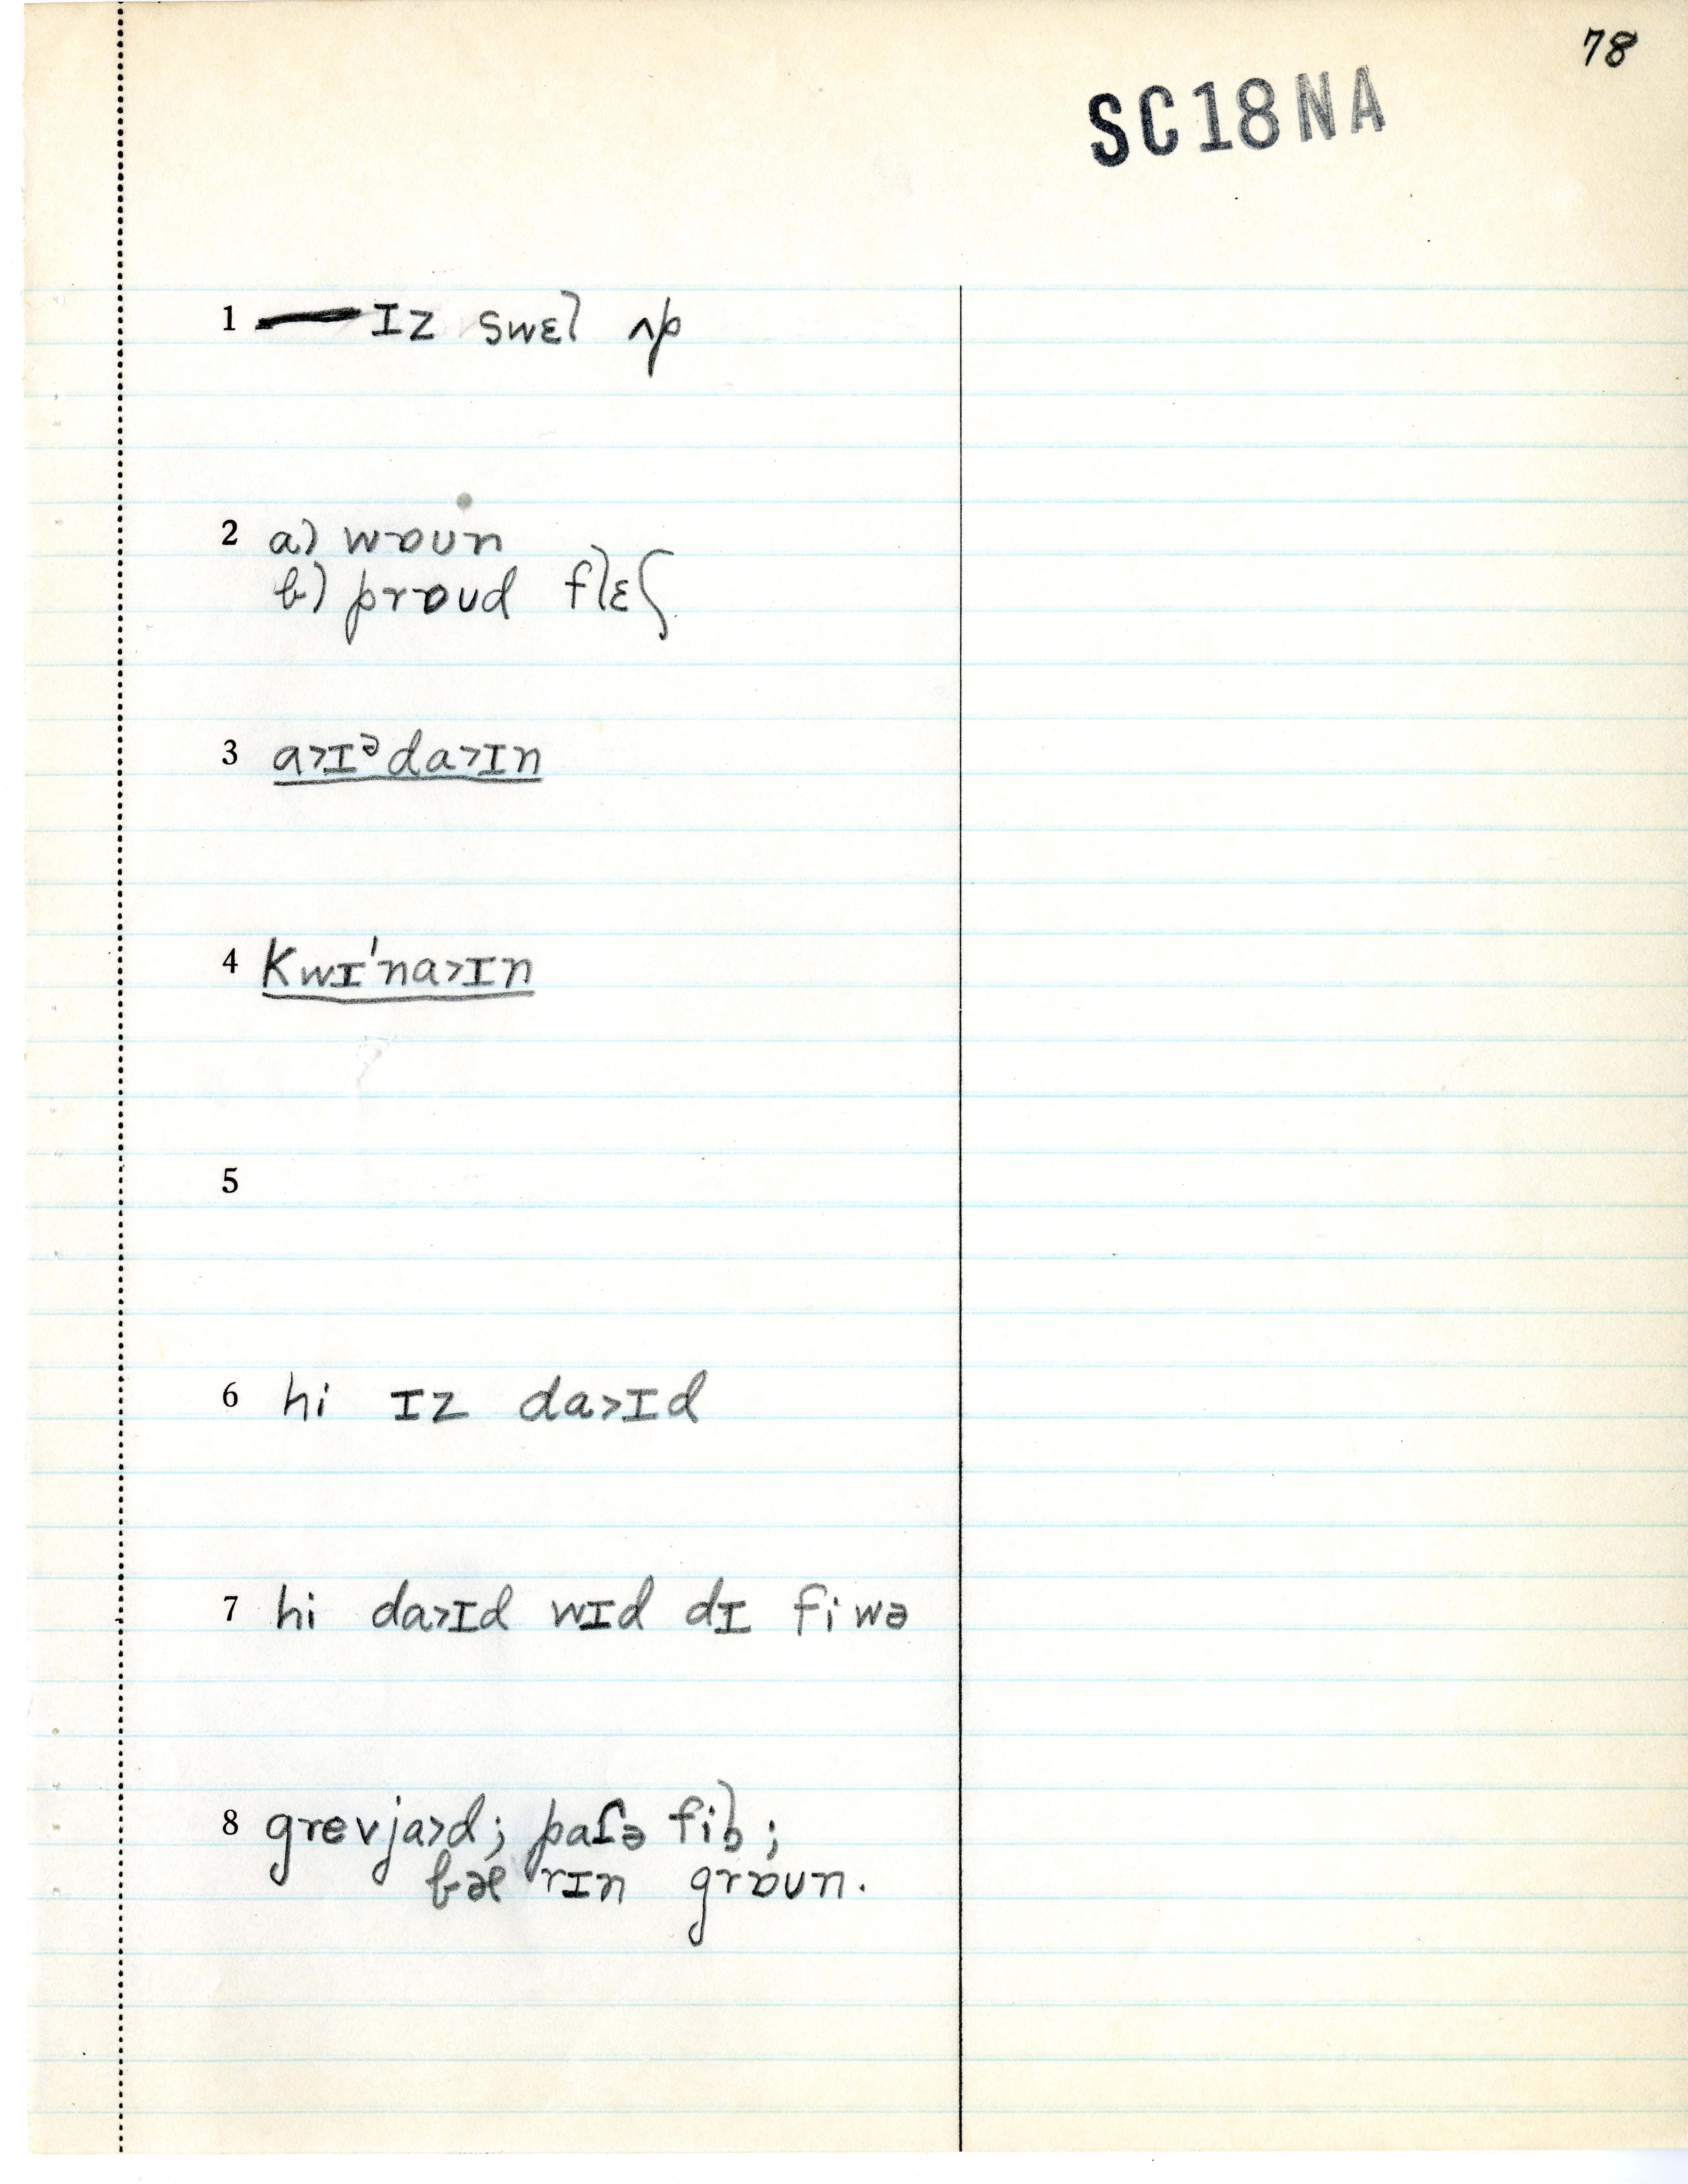 78
SC18NA
1 — ɪz swɛl ʌp
2 a) wɒun
b) prɒud flɛʃ
3 a>ɪᵊda>ɪn
4 Kwɪ'na>ɪn
5
6 hi ɪz da>ɪd
7 hi da>ɪd wɪd dɪ fiwə
8 grevja>d; paſə fil̥;
bæ rɪn grɒun.